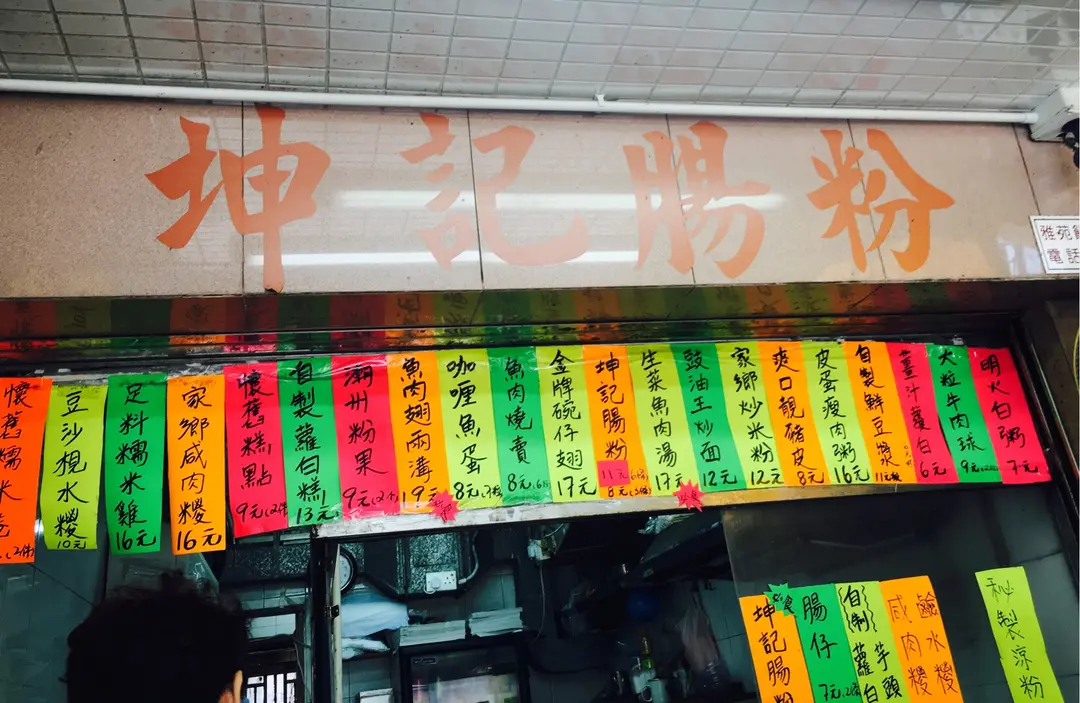 坤記腸粉
雅苑
電話
懷舊糯米
豆沙梘水糉 10元
足料糯米雞 16元
家鄉咸肉糉 16元
懷舊糕點 9元
自製蘿白糕 13元
潮州粉果 9元
魚肉翅兩溝 19元
咖喱魚蛋 8元
魚肉燒賣 8元
金牌碗仔翅 17元
坤記腸粉 11元 8元
生菜魚肉湯 17元
豉油王炒面 12元
家鄉炒米粉 12元
爽口靚豬皮 8元
皮蛋瘦肉粥 16元
自製鮮豆漿 11元
薑汁蘿白 6元
大粒牛肉球 9元
明火白粥 7元
坤記腸粉
腸仔 7元
自制 蘿白 芋頭
咸肉糉 鹼水糉
秘製涼粉